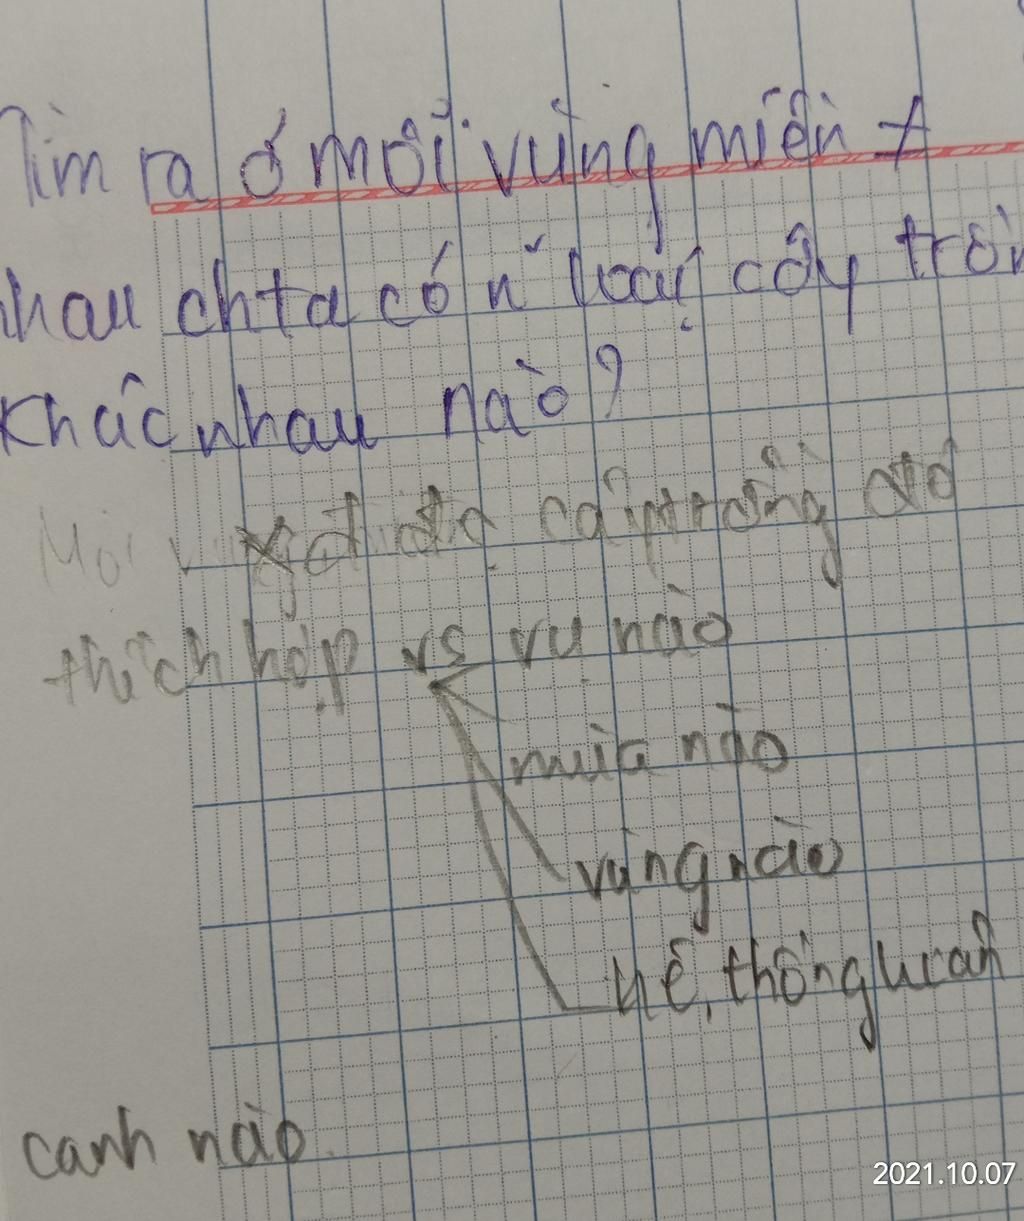 Tìm ra ở mỗi vùng miền ≠
nhau chta có n~ loại cây trồn
khác nhau nào?
cây trồng đó
thích hợp vs vụ nào
mùa nào
vùng nào
hệ thống
canh nào.
2021.10.07